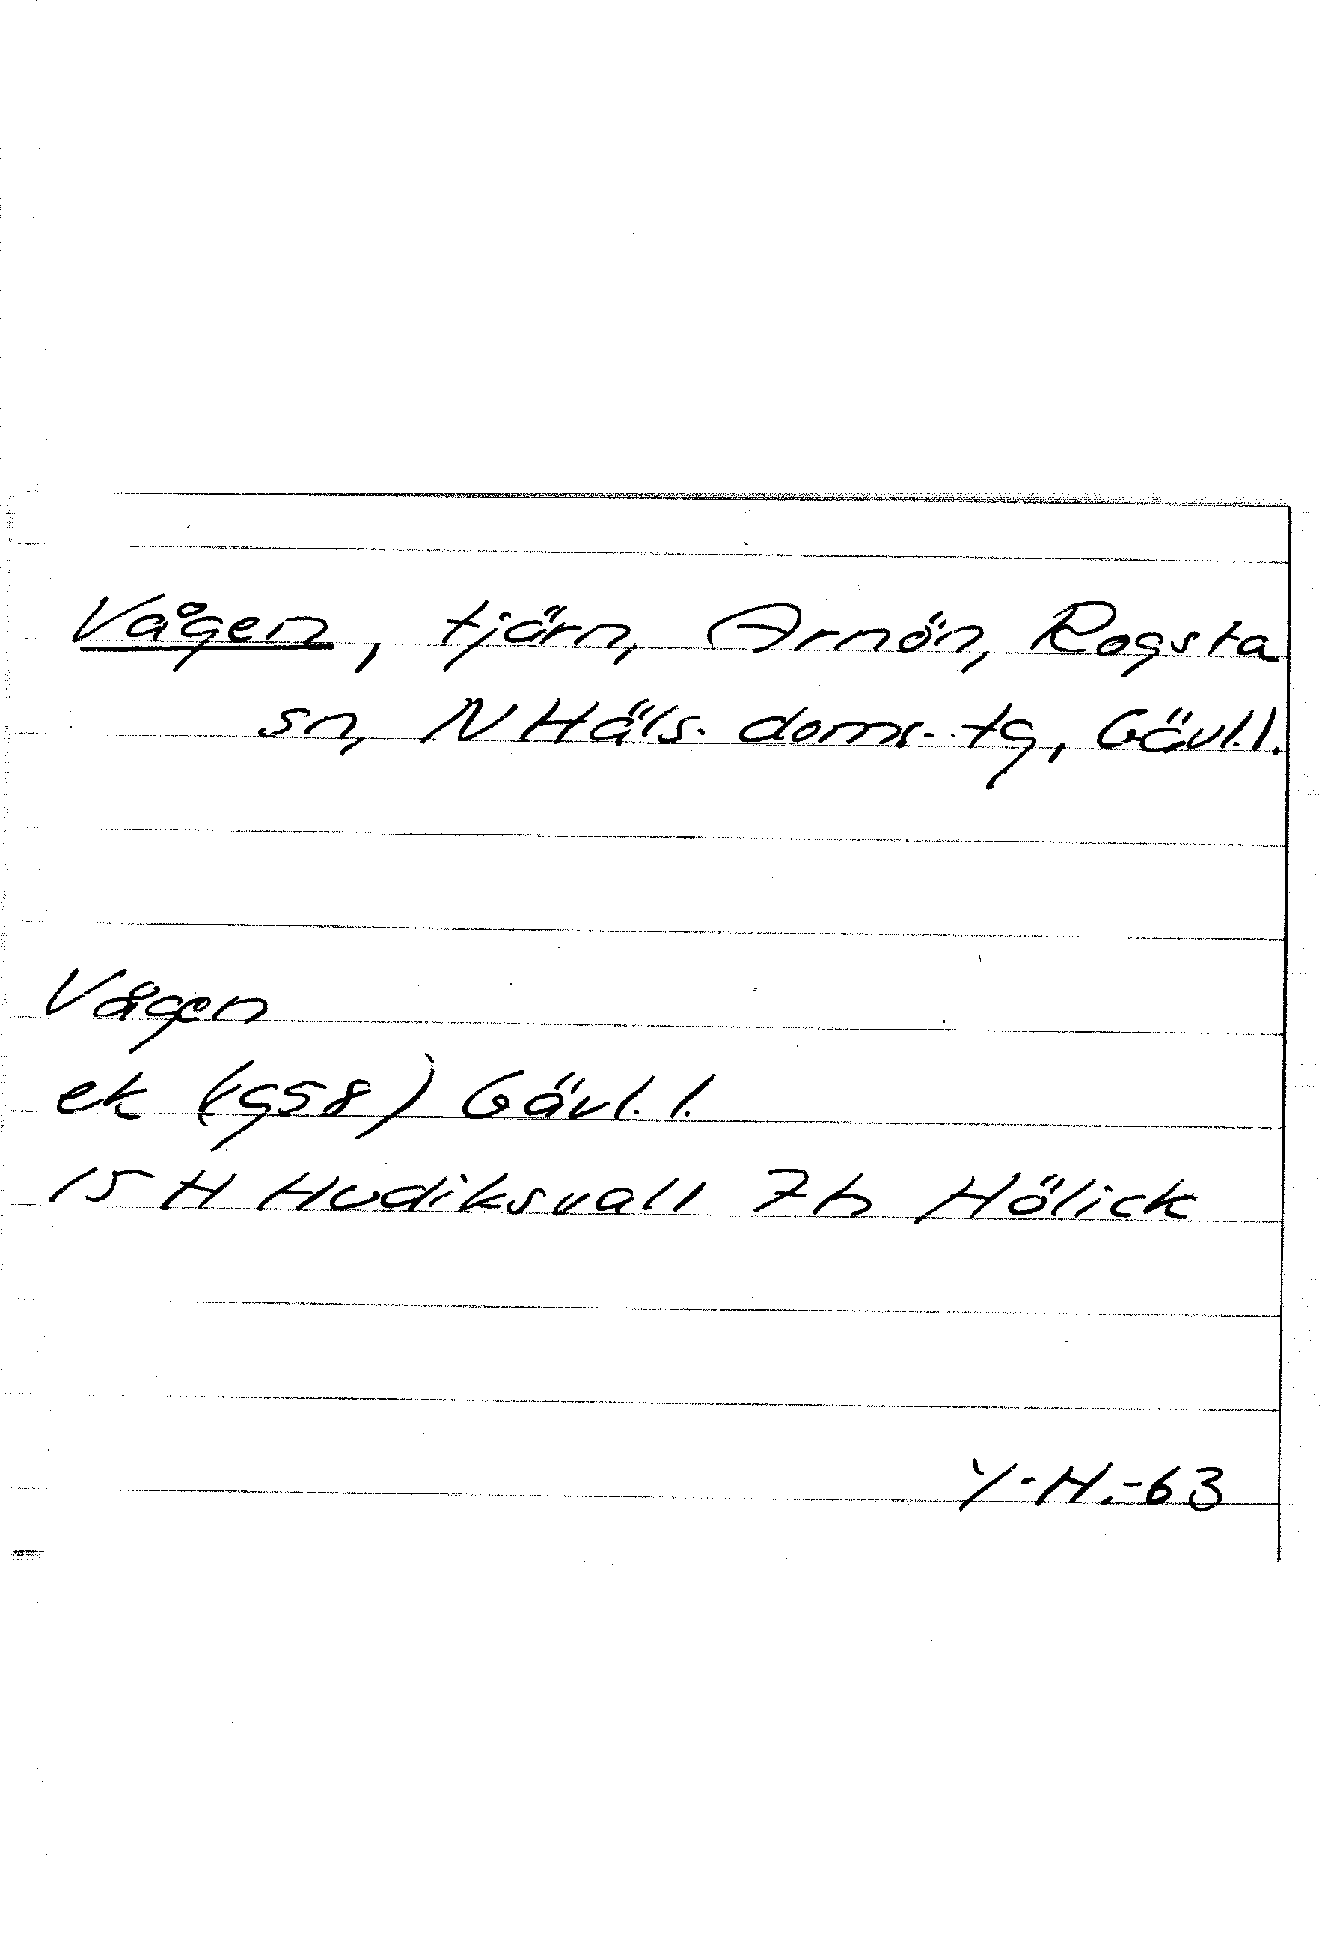 Vågen, tjärn, Arnön, Rogsta
sn, N Häls. doms. tg, Gävl.l.
Vågen
ek (1958) Gävl.l.
15 H Hudiksvall 7h Hölick
Y-H.-63